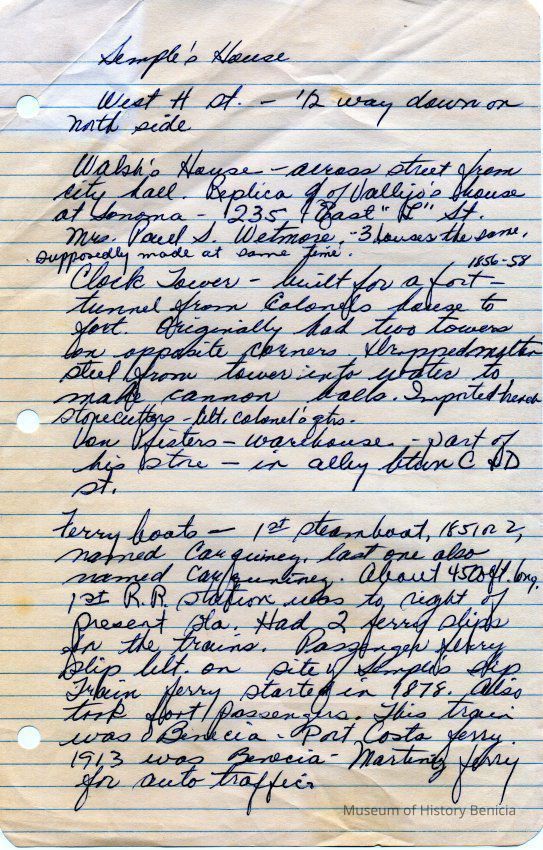 Semple's House
West H St. - 1/2 way down on
north side
Walsh's House - across street from
city hall. Replica of Vallejo's house
at Sonoma - 235 East "L" St.
Mrs. Paul S. Wetmore. - 3 houses the same,
supposedly made at same time.
1856-58
Clock Tower - built for a fort -
tunnel from Colonels house to
fort. Originally had two towers
on opposite corners. Dropped molten
steel from tower into water to
make cannon balls. Imported french
stonecutters - blt. colonel's qtrs.
Von Pfisters - warehouse - part of
his store - in alley btwn C & D
st.
Ferry boats - 1st steamboat, 1851 or 2,
named Carquinez, last one also
named Carquinez. About 4500 ft. long.
1st R.R. station was to right of
present sta. Had 2 ferry slips
for the trains. Passenger ferry
slip blt. on site of Semples slip
Train ferry started in 1878. Also
took foot passengers. This train
was Benecia - Port Costa ferry.
1913 was Benecia - Martinez ferry
for auto traffic.
Museum of History Benicia